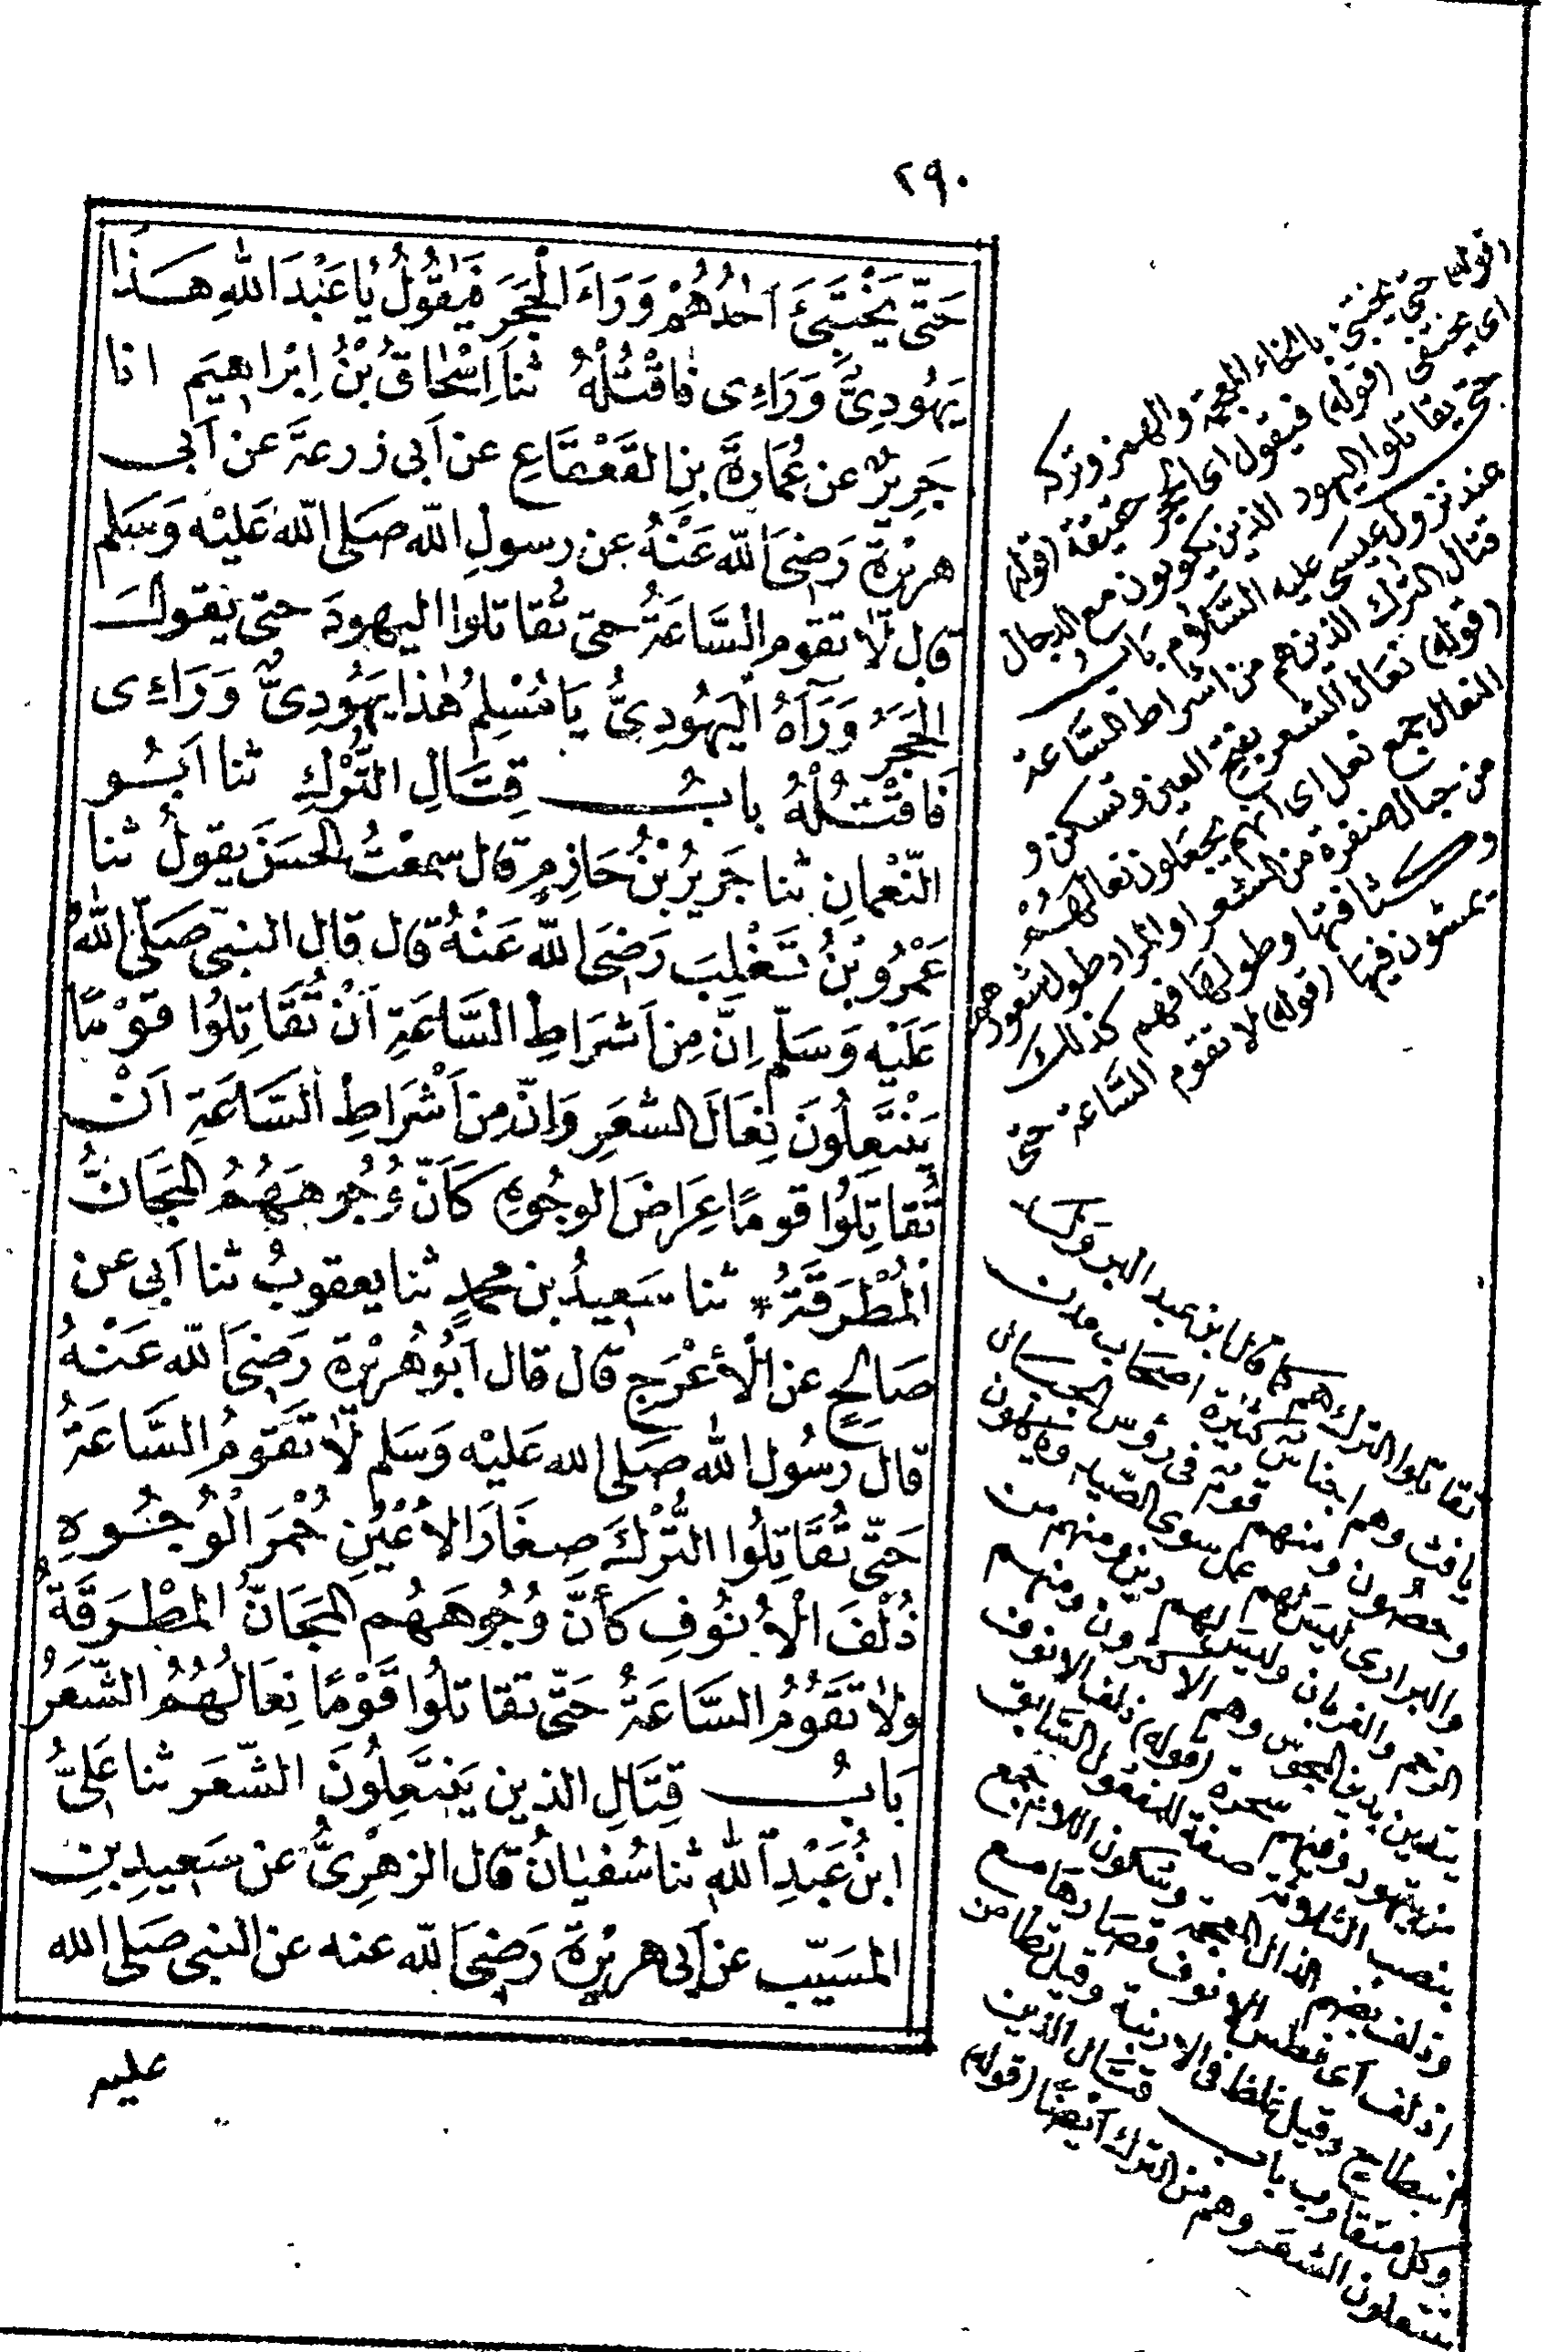 ٢٩٠
حَتّى يَخْتَبِئَ اَحَدُهُمْ وَرَاءَ الْحَجَرِ فَيَقُولُ يَا عَبْدَ اللهِ هَـذَا
يَهُودِىٌّ وَرَاءِى فَاقْتُلْهُ ثنا اِسْحَاقُ بْنُ اِبْرَاهِيمَ انا
جَرِيرٌ عن عُمَارَةَ بنِ القَعْقَاعِ عن اَبى زرعةَ عن اَبى
هريْرةَ رَضِىَ اللّه عَنْهُ عن رسولِ اللّه صَلى اللّه عَلَيْه وَسَلم
قال لَا تقوم السَّاعَةُ حتى تُقاتلوا اليهودَ حتى يَقولَ
الْحَجَرُ وَرَآءَهُ الْيَهُودِىُّ يَا مُسْلِمُ هٰذا يَهُودِىٌّ وَرَاءِى
فَاقْتُلْهُ بابُ قِتَالِ التُّرْكِ ثنا اَبُو
النّعْمانِ ثنا جَرِيرُ بْنُ حَازِمٍ قال سمعْتُ الحسَنَ يقولُ ثنا
عَمْرُو بْنُ تَغْلِبَ رَضِىَ اللّه عَنْهُ قال قال النبى صَلّى اللّهُ
عَلَيْه وَسَلّم اِنَّ مِنْ اَشْرَاطِ السَّاعَةِ اَنْ تُقَاتِلُوا قَوْمًا
يَنْتَعِلُونَ نِعَالَ الشَّعَرِ وَاِنَّ مِنْ اَشْرَاطِ السَّاعَةِ اَنْ
تُقاتِلُوا قومًا عِرَاضَ الوجُوهِ كَأَنَّ وُجُوهَهُمُ المَجَانُّ
الْمُطْرَقَةُ * ثنا سَعِيدُ بن محمدٍ ثنا يعقوبُ ثنا اَبى عن
صَالحٍ عن الْأَعْرَجِ قال قال اَبُو هُرَيْرةَ رَضِىَ اللّه عَنْهُ
قالَ رَسُول اللّه صَلى الله عَليْه وَسَلم لَا تَقُومُ السَّاعَةُ
حَتّى تُقَاتِلُوا التُّرْكَ صِغَارَ الأَعْيُنِ حُمْرَ الْوُجُوهِ
ذُلْفَ الْأُنُوفِ كأَنَّ وُجُوهَهُم المَجَانُّ المُطْرَقَةُ
ولا تَقُومُ السَّاعَةُ حَتّى تقاتلُوا قَوْمًا نِعَالُهُمُ الشَّعَرُ
بَابُ قِتَالِ الذين يَنْتَعِلُونَ الشّعَر ثنا عَلِىُّ
ابنُ عَبْدِ اللّهِ ثنا سُفيانُ قال الزهْرِىُّ عن سَعِيدِ بنِ
المُسَيّبِ عن اَبى هريْرةَ رَضِىَ اللّه عنه عن النبى صَلى الله
عليه
(قوله) حتى يختبئ بالخاء المعجمة والهمز وتركه
اى يختفى (قوله) فيقول اى الحجر حقيقة (قوله)
حتى يقاتلوا اليهود الذين يكونون مع الدجال
عند نزول عيسى عليه السّلام باب
قتال الترك الذين هم من اشراط السّاعة
(قوله) نعال الشعر بفتح العين وتسكن و
النعال جمع نعل اى انهم يجعلون نعالهم
من حبال ضفرة من الشعر او المراد طول شعورهم
وكثافتها وطولها فهم كذلك
يمشون فيها (قوله) لا تقوم السّاعة حتى
تقاتلوا الترك هم كما قال ابن عبد البر ولد
يافث وهم اجناس كثيرة اصحاب مدن
وحصون ومنهم قوم فى رؤس الجبال
والبرارى ليس لهم عمل سوى الصّيد وياكلون
الرخم والغربان وليس لهم دين ومنهم من
يتدين بدين المجوس وهم الاكثرون ومنهم
من يتهود ومنهم سحرة (قوله) ذلف الانوف
بنصب الثلاثة صفة للمفعول السّابق
وذلف بضم الذال المعجمة وسكون اللام جمع
اذلف اى فطس الانوف قصارها مع
انبطاح وقيل غلظ فى الارنبة وقيل تطامن
وكل متقارب باب قتال الذين
ينتعلون الشعر وهم من الترك ايضًا (قوله)